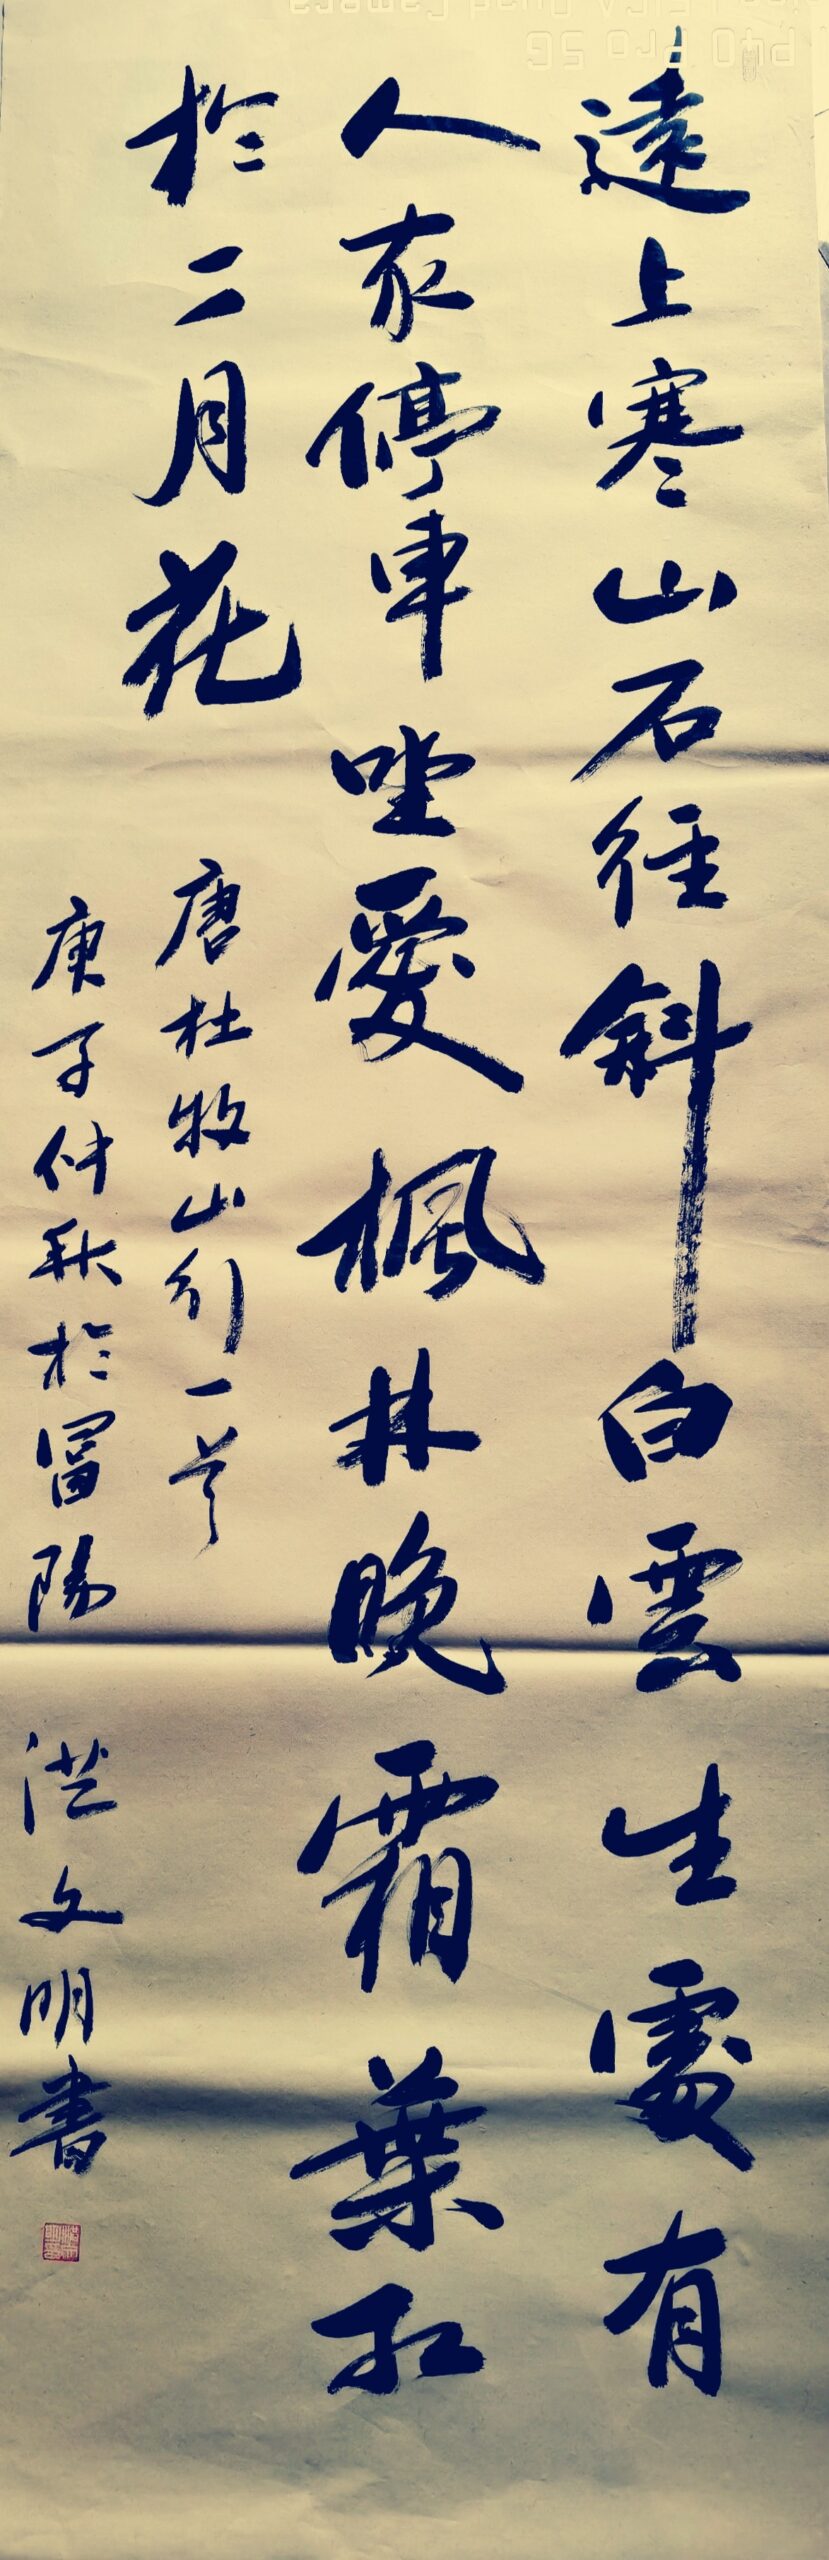 遠上寒山石径斜白雲生處有
人家停車坐愛楓林晚霜葉紅
於二月花
唐杜牧山行一首
庚子仲秋於富陽 洪文明書
Quad Camera
P40 Pro 5G